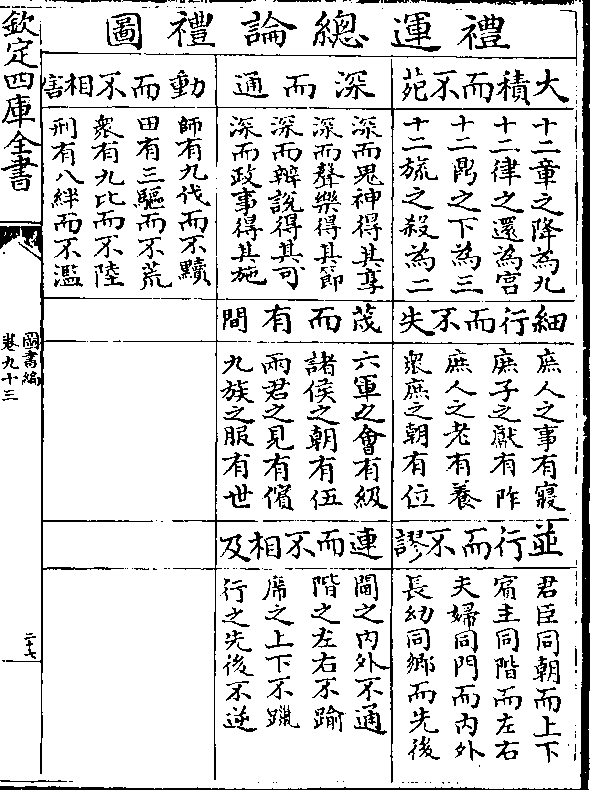 禮運總論禮圖
大積而不苑
十二章之降為九
十二律之還為宮
十二鼎之下為三
十二旒之殺為二
細行而不失
庶人之事有寢
庶子之獻有阼
庶人之老有養
眾庶之朝有位
並行而不謬
君臣同朝而上下
賔主同階而左右
夫婦同門而內外
長幼同鄉而先後
深而通
深而鬼神得其享
深而聲樂得其節
深而辨說得其可
深而政事得其施
茂而有間
六軍之會有級
諸侯之朝有伍
兩君之見有儐
九族之服有世
連而不相及
閫之內外不通
階之左右不踰
席之上下不躐
行之先後不逆
動而不相害
師有九伐而不黷
田有三驅而不荒
衆有九比而不陸
刑有八絆而不濫
欽定四庫全書
圖書編
卷九十三
二十七